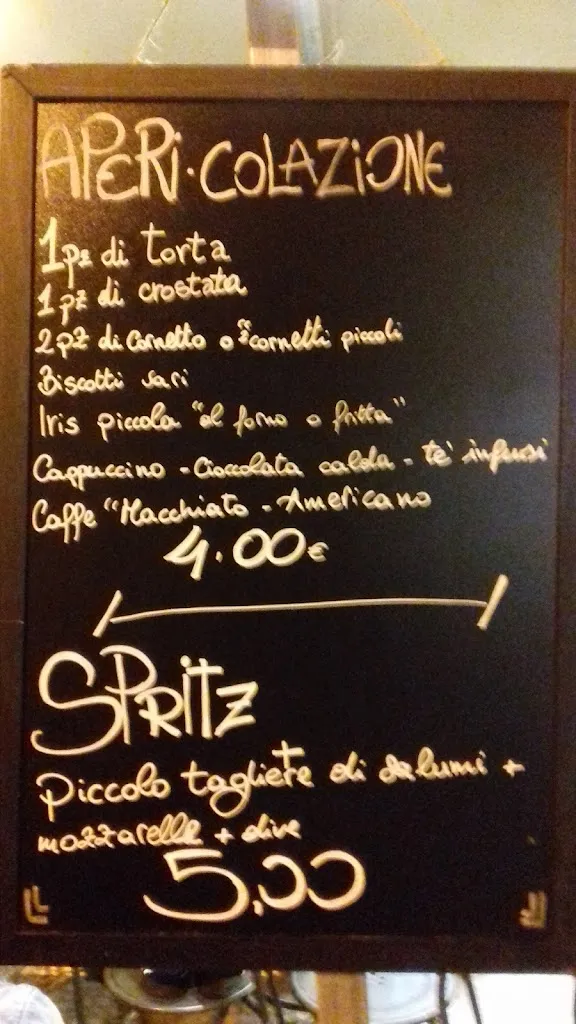 APERi·COLAZiONE
1pz di torta
1 pz di crostata
2 pz di Cornetto o "2 cornetti piccoli
Biscotti vari
Iris piccola "al forno o fritta"
Cappuccino - Cioccolata calda - te' infusi
Caffe "Macchiato - Americano
4.00€
SPRitZ
+
piccolo tagliere di salumi +
mozzarelle + olive
5,00